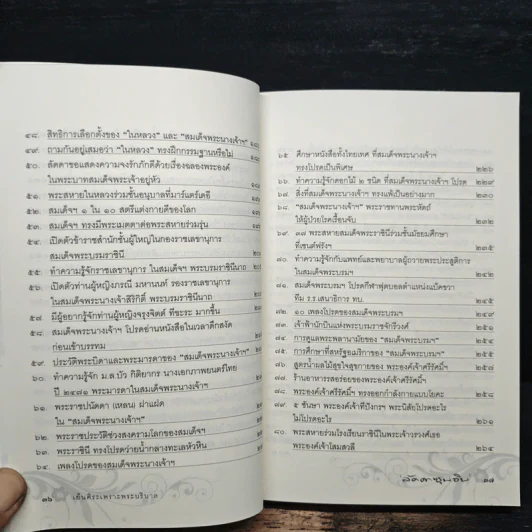 ๔๘. สิทธิการเลือกตั้งของ "ในหลวง" และ "สมเด็จพระนางเจ้าฯ"
๔๙. ถามกันอยู่เสมอว่า "ในหลวง" ทรงฝึกกรรมฐานหรือไม่
๕๐. ลัดดาขอแสดงความจงรักภักดีด้วยเรื่องฉลองพระองค์
ในพระบาทสมเด็จพระเจ้าอยู่หัว
๕๑. พระสหายในหลวงร่วมชั้นอนุบาลที่มาร์แตร์เดอี
๕๒. สมเด็จฯ ๑ ใน ๑๐ สตรีแต่งกายดีของโลก
๕๓. สมเด็จฯ ทรงมีพระเมตตาต่อพระสหายร่วมรุ่น
๕๔. เปิดตัวข้าราชสำนักชั้นผู้ใหญ่ในกองราชเลขานุการ
สมเด็จพระบรมราชินี
๕๕. ทำความรู้จักราชเลขานุการ ในสมเด็จฯ พระบรมราชินีนาถ
๕๖. เปิดตัวท่านผู้หญิงภรณี มหานนท์ รองราชเลขานุการ
ในสมเด็จพระนางเจ้าสิริกิติ์ พระบรมราชินีนาถ
๕๗. มีผู้อยากรู้จักท่านผู้หญิงจรุงจิตต์ ทีขะระ มากขึ้น
๕๘. สมเด็จพระนางเจ้าฯ โปรดอ่านหนังสือในเวลาดึกสงัด
ก่อนเข้าบรรทม
๕๙. ประวัติพระบิดาและพระมารดาของ "สมเด็จพระนางเจ้าฯ"
๖๐. ทำความรู้จัก ม.ล.บัว กิติยากร นางเอกภาพยนตร์ไทย
ปี ๒๔๗๑ พระมารดาในสมเด็จพระนางเจ้าฯ
๖๑. พระราชปนัดดา (เหลน) ฝาแฝด
ใน "สมเด็จพระนางเจ้าฯ"
๖๒. พระราชประวัติช่วงสงครามโลกของสมเด็จฯ
๖๓. พระราชินี ทรงโปรดว่ายน้ำกลางทะเลหัวหิน
๖๔. เพลงโปรดของสมเด็จพระนางเจ้าฯ
๑๖ เย็นศิระเพราะพระบริบาล
๖๕. ศึกษาหนังสือทั้งไทยเทศ ที่สมเด็จพระนางเจ้าฯ
ทรงโปรดเป็นพิเศษ ๒๒๖
๖๖. ทำความรู้จักดอกไม้ ๒ ชนิด ที่สมเด็จพระนางเจ้าฯ โปรด ๒๒๙
๖๗. สิ่งที่สมเด็จพระนางเจ้าฯ ทรงแพ้เป็นอย่างมาก
๖๘. "สมเด็จพระนางเจ้าฯ" พระราชทานพระหัตถ์
ให้ผู้ป่วยโรคเรื้อนจับ ๒๓๒
๖๙. ๓๗ พระสหายสมเด็จพระราชินีร่วมชั้นมัธยมศึกษา
ที่เซนต์ฟรังฯ ๒๓๕
๗๐. ทำความรู้จักกับแพทย์และพยาบาลผู้ถวายพระประสูติการ
ในสมเด็จพระบรมฯ ๒๔๒
๗๑. สมเด็จพระบรมฯ โปรดกีฬาฟุตบอลตำแหน่งแบ๊คขวา
ทีม ร.ร.เสนาธิการ ทบ. ๒๔๕
๗๒. ๑๐ เพลงโปรดของสมเด็จพระบรมฯ ๒๔๗
๗๓. เจ้าฟ้านักบินแห่งพระบรมราชจักรีวงศ์ ๒๔๙
๗๔. การดูแลพระพลานามัยของ "สมเด็จพระบรมฯ"
๗๕. การศึกษาที่สหรัฐอเมริกาของ "สมเด็จพระบรมฯ"
๗๖. สูตรน้ำผลไม้สุขใจสุขกายของ พระองค์เจ้าศรีรัศมิ์ฯ
๗๗. ร้านอาหารอร่อยของพระองค์เจ้าศรีรัศมิ์ฯ
๗๘. พระองค์เจ้าศรีรัศมิ์ฯ ทรงออกกำลังกายแบบโยคะ ๒๕๘
๗๙. ๕ ชันษา พระองค์เจ้าทีปังกรฯ พระนิสัยโปรดอะไร
ไม่โปรดอะไร
๘๐. พระสหายร่วมโรงเรียนราชินีในพระเจ้าวรวงศ์เธอ
พระองค์เจ้าโสมสวลี ๒๖๔
ลัดดาซุบซิบ ๑๗